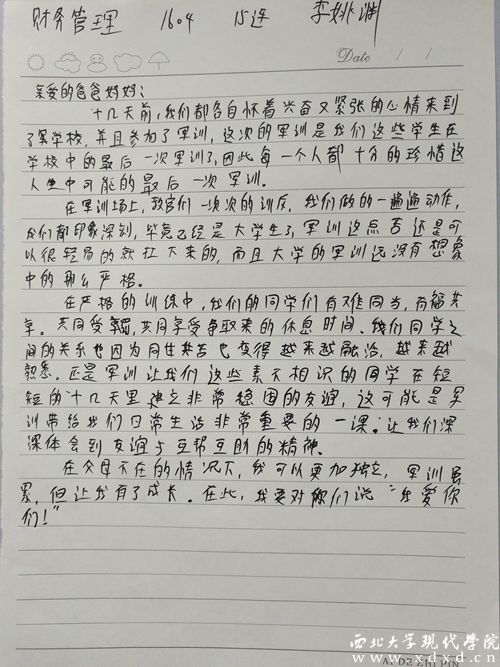 财务管理 1604 15连 李姚渊
Date / /
亲爱的爸爸妈妈:
十几天前,我们都各自怀着兴奋又紧张的心情来到
了学校,并且参加了军训,这次的军训是我们这些学生在
学校中的最后一次军训了,因此每一个人都十分的珍惜这
人生中可能的最后一次军训。
在军训场上,教官们一次次的训斥,我们做的一遍遍动作,
我们都印象深刻,毕竟已经是大学生了,军训这点苦还是可
以很轻易的就扛下来的,而且大学的军训远没有想象
中的那么严格。
在严格的训练中,我们的同学们有难同当,有福共
享。共同受罚,共同享受争取来的休息时间。我们同学之
间的关系也因为同甘共苦也变得越来越融洽,越来越
熟悉。还是军训让我们这些素不相识的同学在短
短的十几天里建立非常稳固的友谊,这可能是军
训带给我们日常生活非常重要的一课:让我们深
深体会到友谊与互帮互助的精神。
在父母不在的情况下,我可以更加独立,军训虽
累,但让我有了成长。在此,我要对你们说“我爱你
们!”
西北大学现代学院
www.xdxd.cn